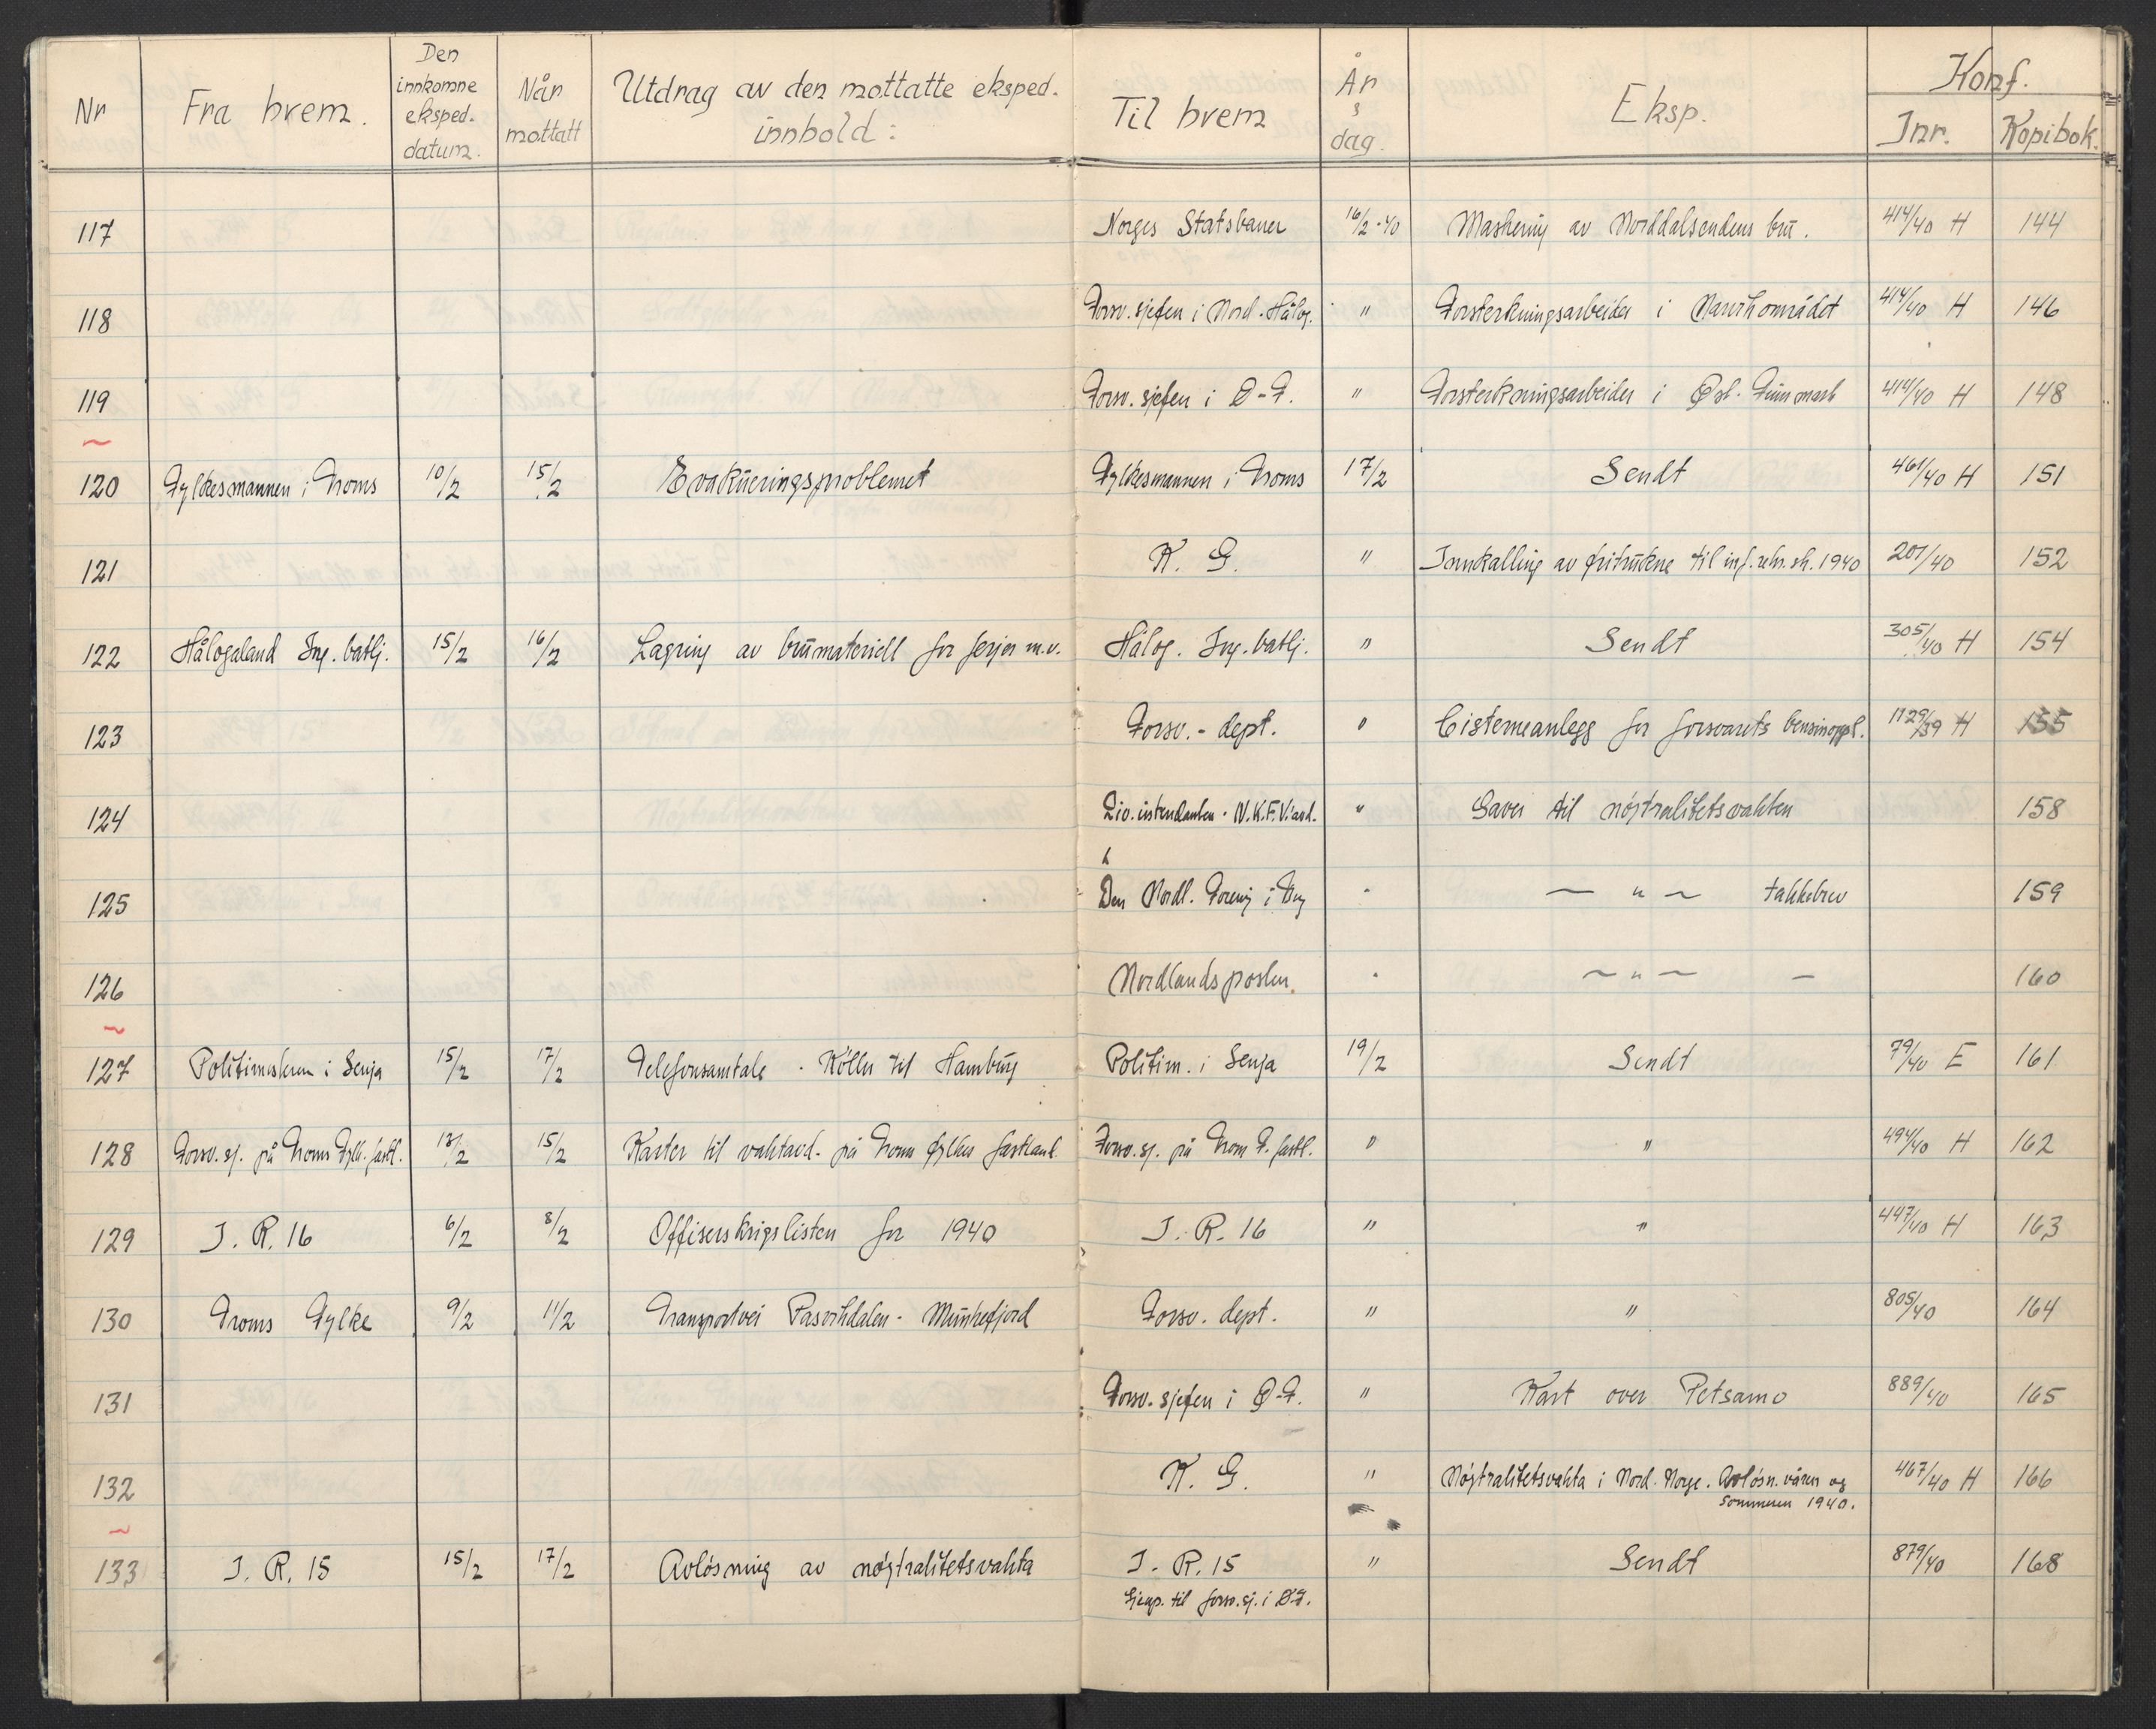 Nr
Fra hvem.
Den innkomne eksped. datum.
Når mottatt
Utdrag av den mottatte eksped. innhold:
Til hvem
År & dag.
Eksp.
Konf.
Jnr.
Kopibok.
117 Norges Statsbaner 16/2-40 Maskering av Norddalsendens bru. 414/40 H 144
118 Forsv. sjefen i Nord-Hålog. " Forsterkningsarbeider i Narvikområdet 414/40 H 146
119 Forsv. sjefen i Ø-F. " Forsterkningsarbeider i Øst-Finnmark 414/40 H 148
120 Fylkesmannen i Troms 10/2 15/2 Evakueringsproblemet Fylkesmannen i Troms 17/2 Sendt 461/40 H 151
121 K. G. " Innkalling av fritrukne til inf. rekr. sk. 1940 201/40 152
122 Hålogaland Ing. batlj. 15/2 16/2 Lagring av brumateriell for ferjer m.v. Hålog. Ing. batlj. " Sendt 305/40 H 154
123 Forsv.-dept. " Cisterneanlegg for forsvarets bensinoppl. 1129/39 H 155
124 N.K.F.V. " Gaver til nøytralitetsvakten 158
125 Den Nordl. Forening i " — " — takkebrev 159
126 Nordlandsposten. " — " — — 160
127 Politimesteren i Senja 15/2 17/2 Telefonsamtale. Köller til Hamburg Politim. i Senja 19/2 Sendt 79/40 E 161
128 Forsv. sj. på Troms Fylk. fastl. 13/2 15/2 Karter til vaktavd. på Troms fylkes fastland Forsv. sj. på Trom F. fastl. " " 494/40 H 162
129 I. R. 16 6/2 8/2 Offiserskrigslisten for 1940 I. R. 16 " " 447/40 H 163
130 Troms Fylke 9/2 11/2 Transportvei Pasvikdalen - Munkefjord Forsv. dept. " " 805/40 164
131 Forsv. sjefen i Ø-F. " Kart over Petsamo 889/40 165
132 K. G. " Nøytralitetsvakta i Nord-Norge. Avløsn. våren og 467/40 H 166
sommeren 1940.
133 I. R. 15 15/2 17/2 Avløsning av nøytralitetsvakta I. R. 15 " Sendt 879/40 168
Gjenp. til forsv. sj. i ØF.